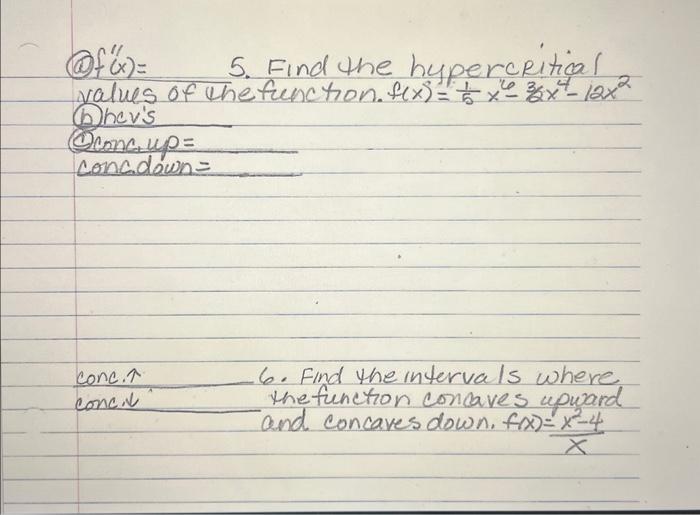 ⓐ f''(x)= ________ 5. Find the hypercritical
values of the function. f(x) = 1/5 x^6 - 3/2 x^4 - 12x^2
ⓑ hcv's ________
ⓒ conc. up = ________
conc. down = ________
conc. ↑ ________ 6. Find the intervals where
conc. ↓ ________ the function concaves upward
and concaves down. f(x) = x^2-4/x